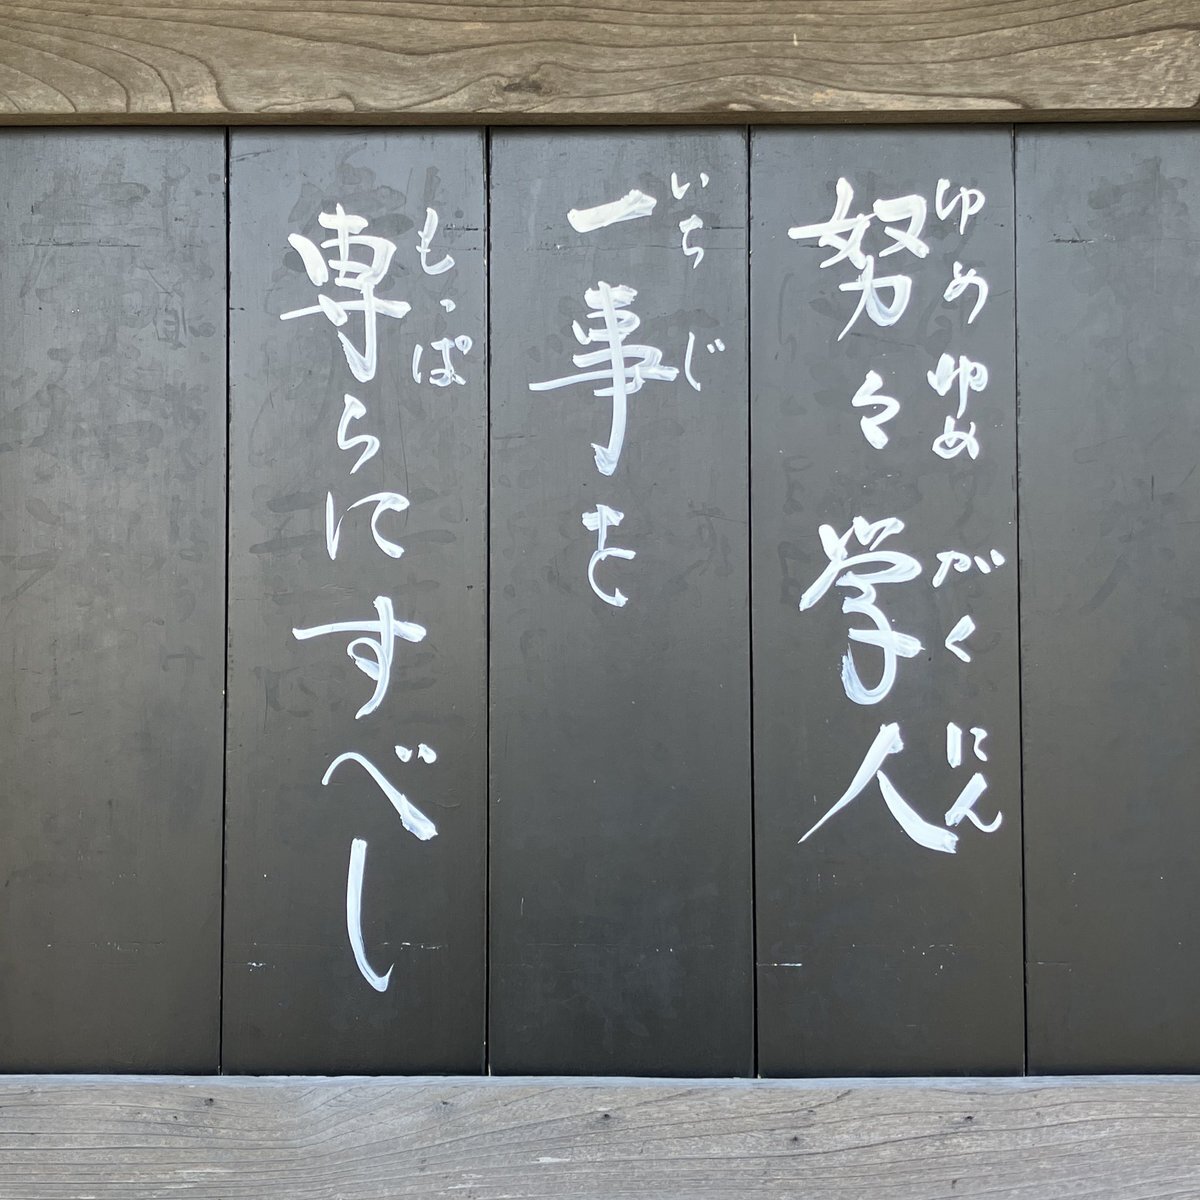 努々学人
ゆめゆめがくにん
一事を
いちじ
専らにすべし
もっぱ